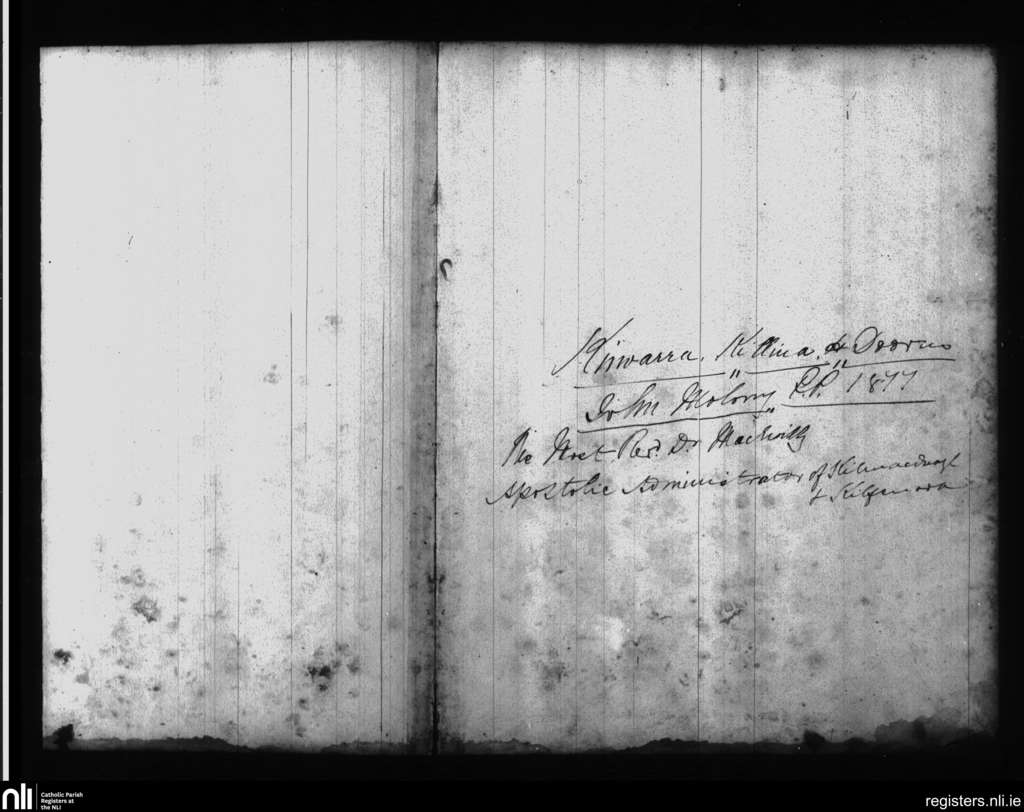 Kinvarra, Killina, & Doorus
John Molony P.P. 1877
The Most Revd. Dr. MacEvilly
Apostolic Administrator of Kilmacduagh
& Kilfenora
nli
Catholic Parish
Registers at
the NLI
registers.nli.ie